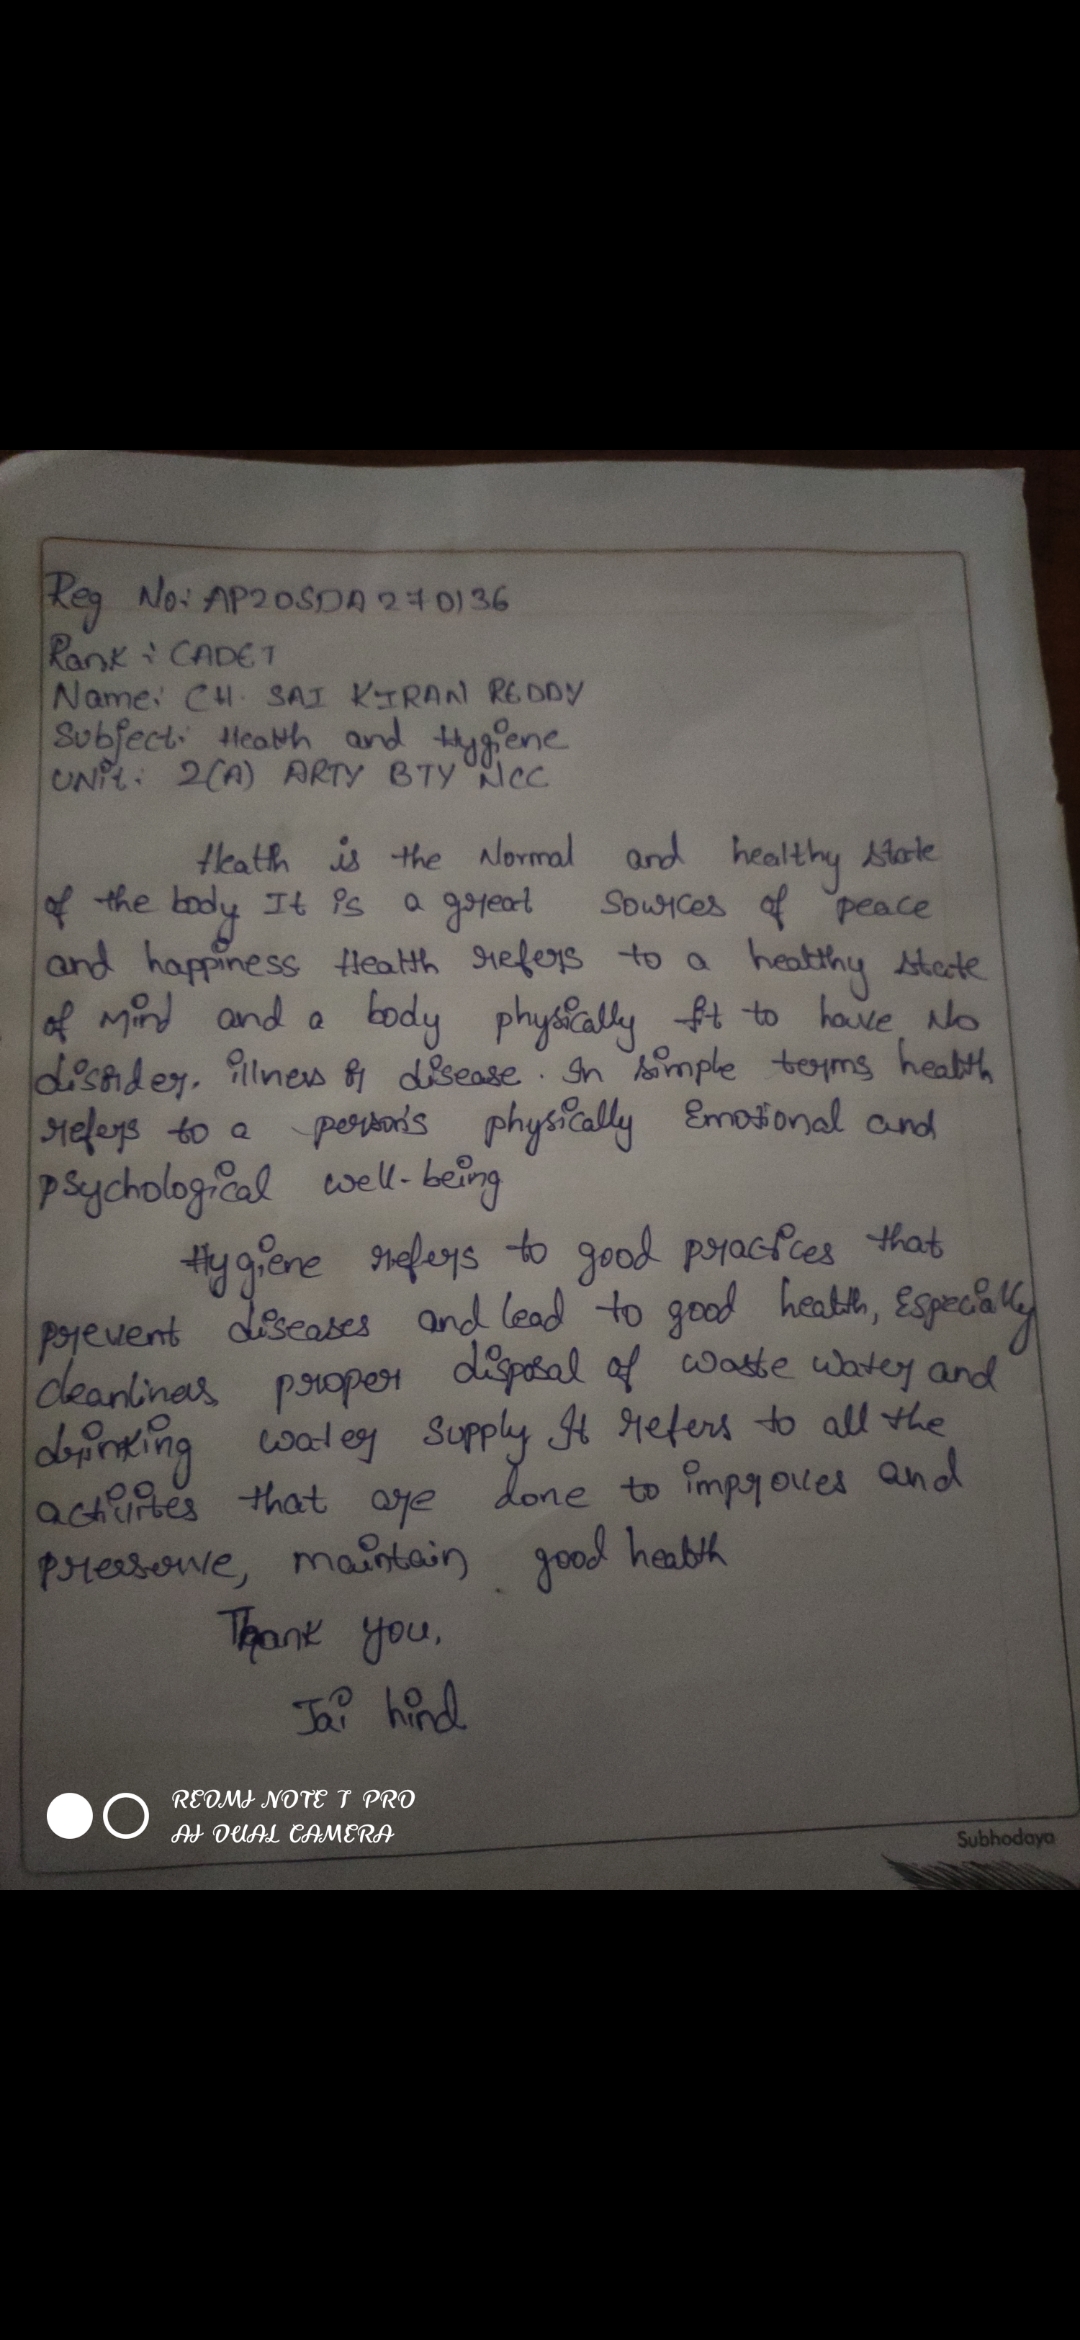 Reg No: AP20SDA270136
Rank: CADET
Name: CH. SAI KIRAN REDDY
Subject: Health and Hygiene
UNit: 2(A) ARTY BTY NCC
Health is the Normal and healthy state
of the body It is a great sources of peace
and happiness Health refers to a healthy state
of Mind and a body physically fit to have No
disorder, illness or disease. In simple terms health
refers to a person's physically Emotional and
psychological well-being
Hygiene refers to good practices that
prevent diseases and lead to good health, Especially
cleanliness proper disposal of waste water and
drinking water supply It refers to all the
activiites that are done to improves and
preserve, maintain good health
Thank you,
Jai hind
REDMI NOTE 7 PRO
AI DUAL CAMERA
Subhodaya